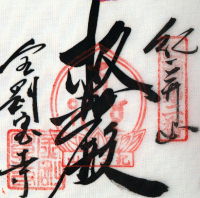 紀三井山
救世殿
金剛宝寺